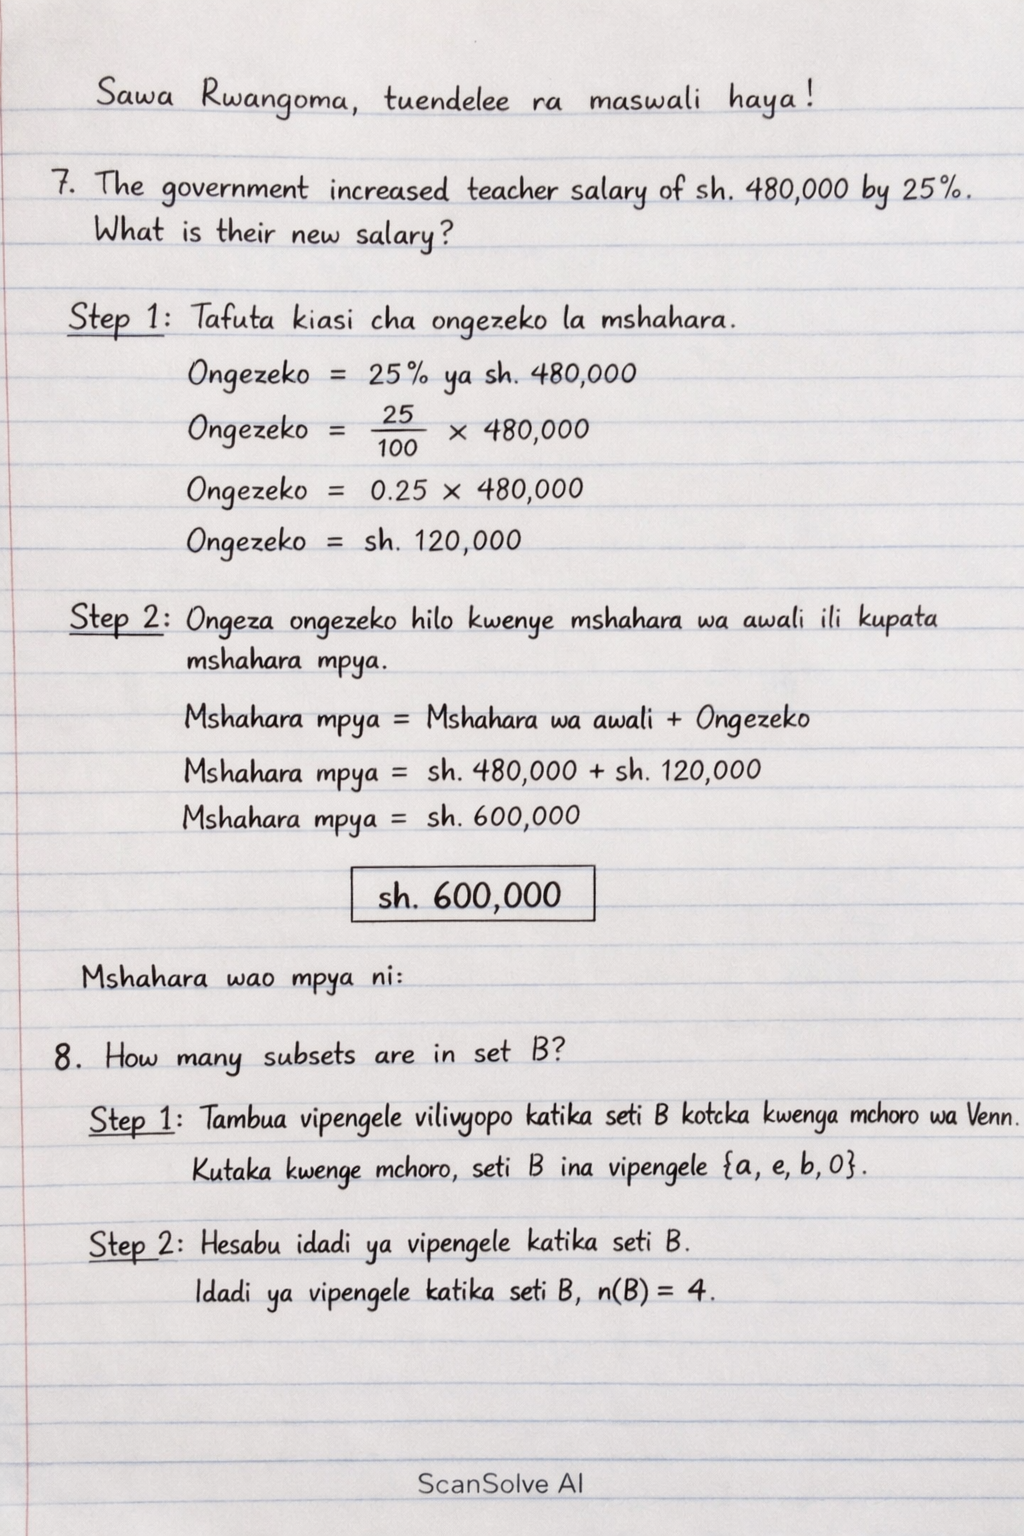 Sawa Rwangoma, tuendelee ra maswali haya!
7. The government increased teacher salary of sh. 480,000 by 25%.
What is their new salary?
Step 1: Tafuta kiasi cha ongezeko la mshahara.
Ongezeko = 25% ya sh. 480,000
Ongezeko = 25/100 × 480,000
Ongezeko = 0.25 × 480,000
Ongezeko = sh. 120,000
Step 2: Ongeza ongezeko hilo kwenye mshahara wa awali ili kupata
mshahara mpya.
Mshahara mpya = Mshahara wa awali + Ongezeko
Mshahara mpya = sh. 480,000 + sh. 120,000
Mshahara mpya = sh. 600,000
sh. 600,000
Mshahara wao mpya ni:
8. How many subsets are in set B?
Step 1: Tambua vipengele vilivyopo katika seti B kotcka kwenga mchoro wa Venn.
Kutaka kwenge mchoro, seti B ina vipengele {a, e, b, 0}.
Step 2: Hesabu idadi ya vipengele katika seti B.
Idadi ya vipengele katika seti B, n(B) = 4.
ScanSolve AI